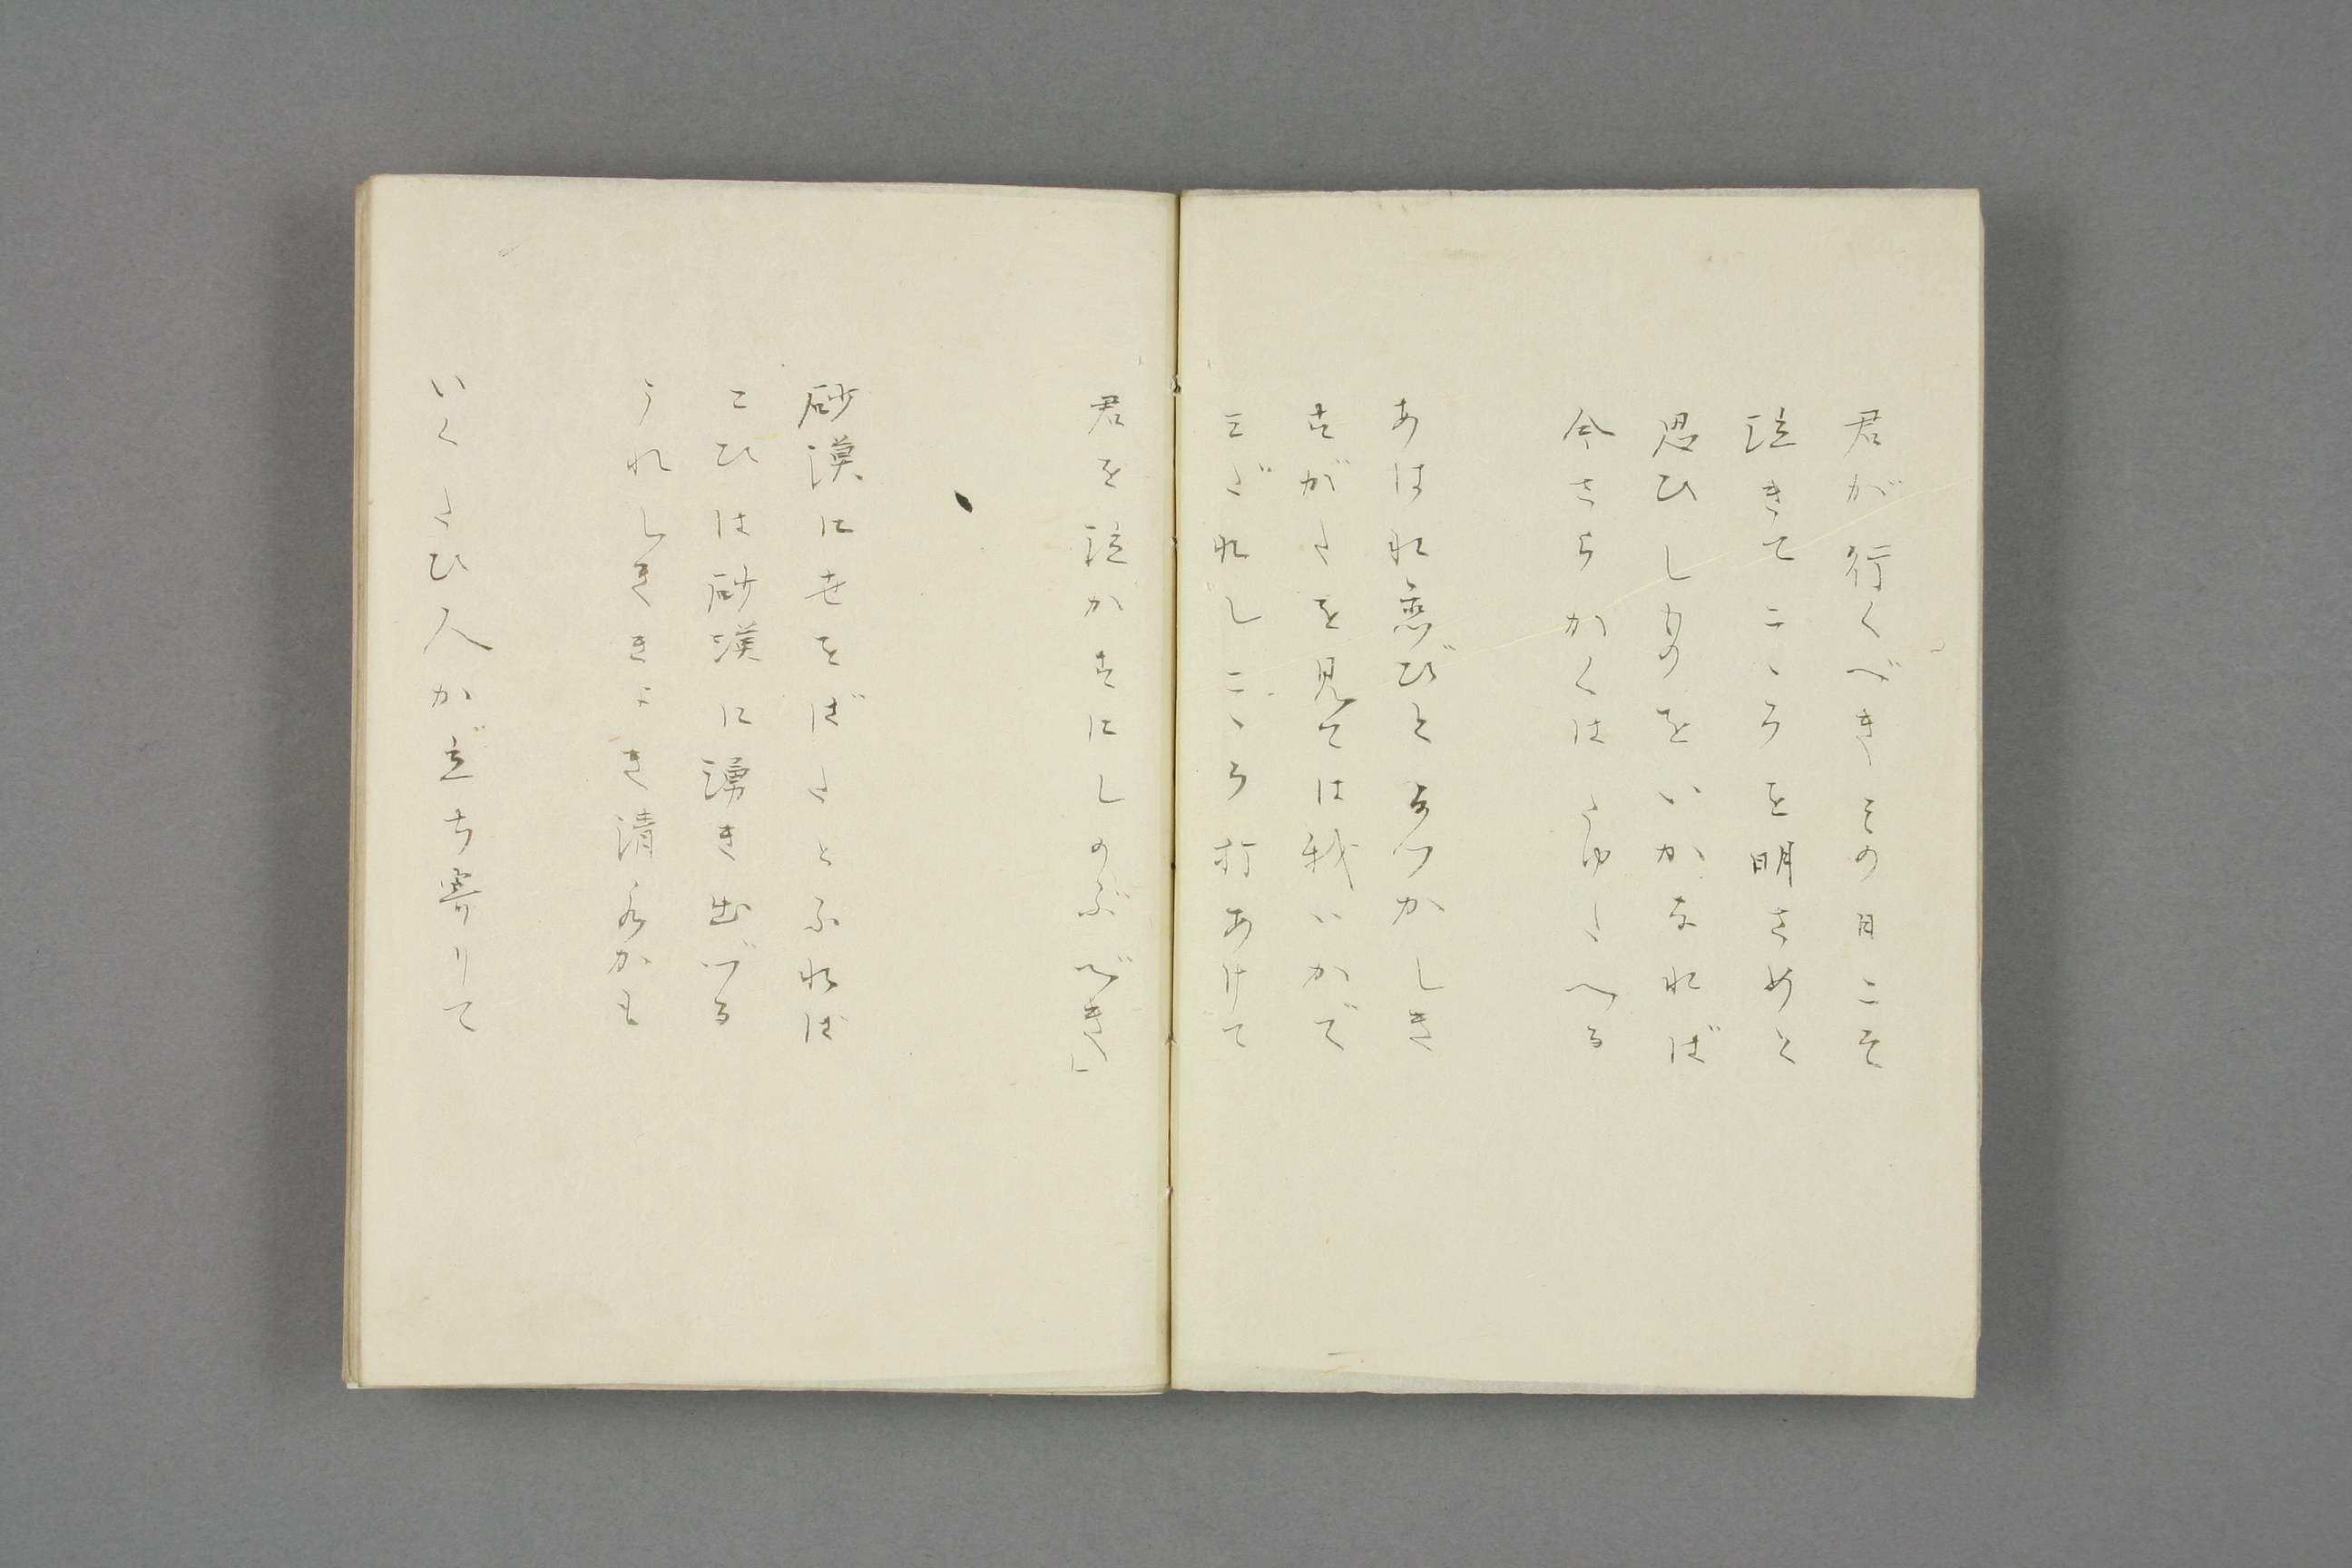 君が行くべきその日こそ
泣きてこゝろを明さめと
思ひしものをいかなれば
今さらかくはたゆたへる
あはれ恋びとなつかしき
すがたを見ては我いかで
みだれしこゝろ打あけて
君を泣かすにしのぶべき」
砂漠に世をばたとふれば
こひは砂漠に湧き出づる
うれしききよき清水かも
いくたび人か立ち寄りて